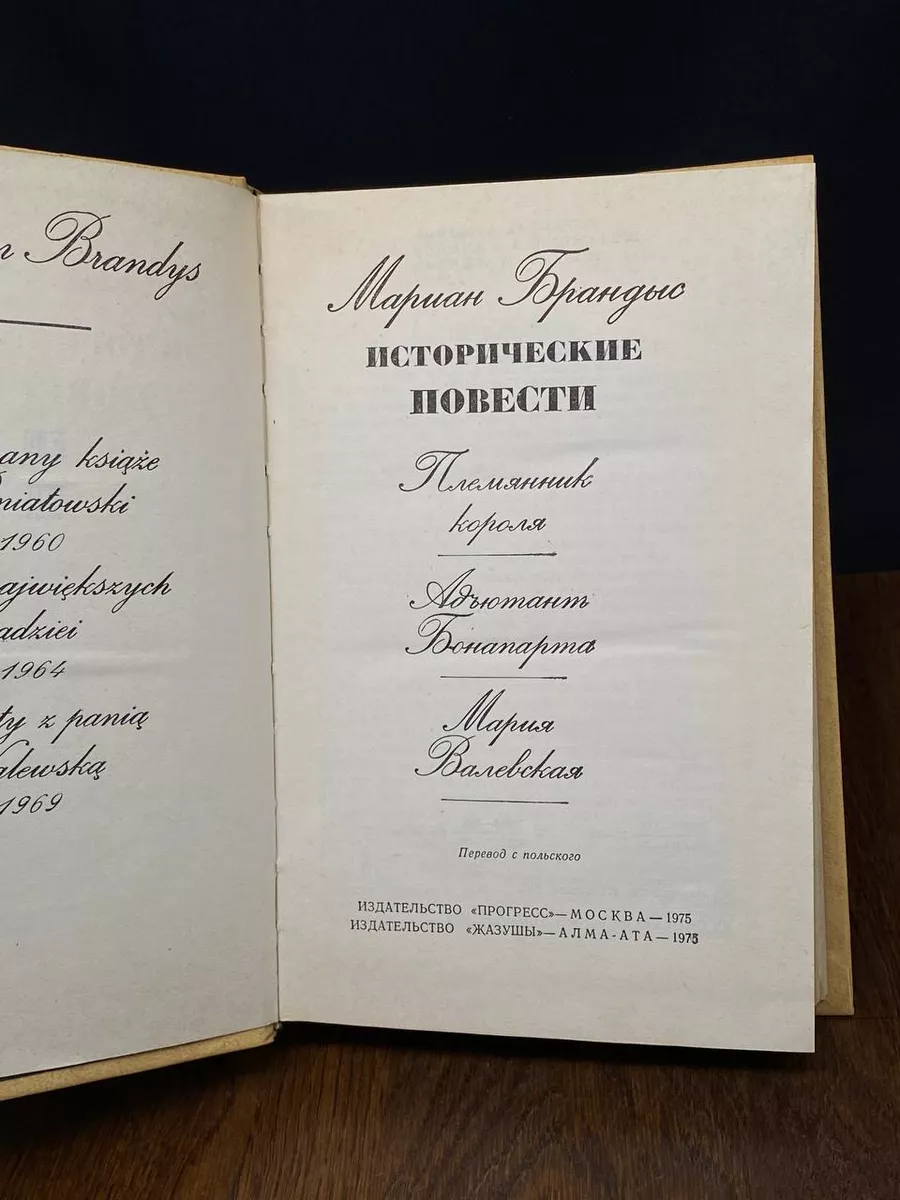 Brandys
książe
1960
1964
z panią
1969
Мариан Брандыс
ИСТОРИЧЕСКИЕ
ПОВЕСТИ
Племянник
короля
Адъютант
Бонапарта
Мария
Валевская
Перевод с польского
ИЗДАТЕЛЬСТВО «ПРОГРЕСС»—МОСКВА—1975
ИЗДАТЕЛЬСТВО «ЖАЗУШЫ»—АЛМА-АТА—1975